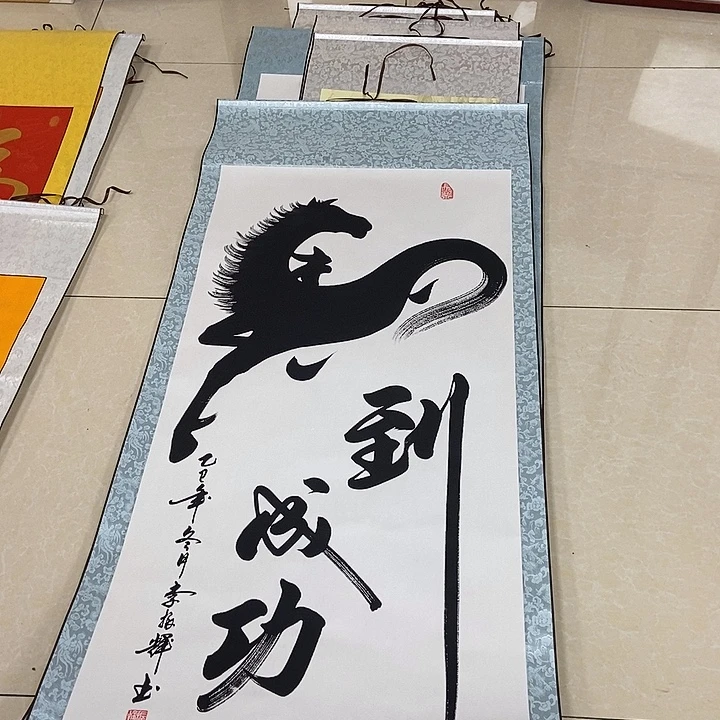 马到成功
乙巳年冬月李振辉书